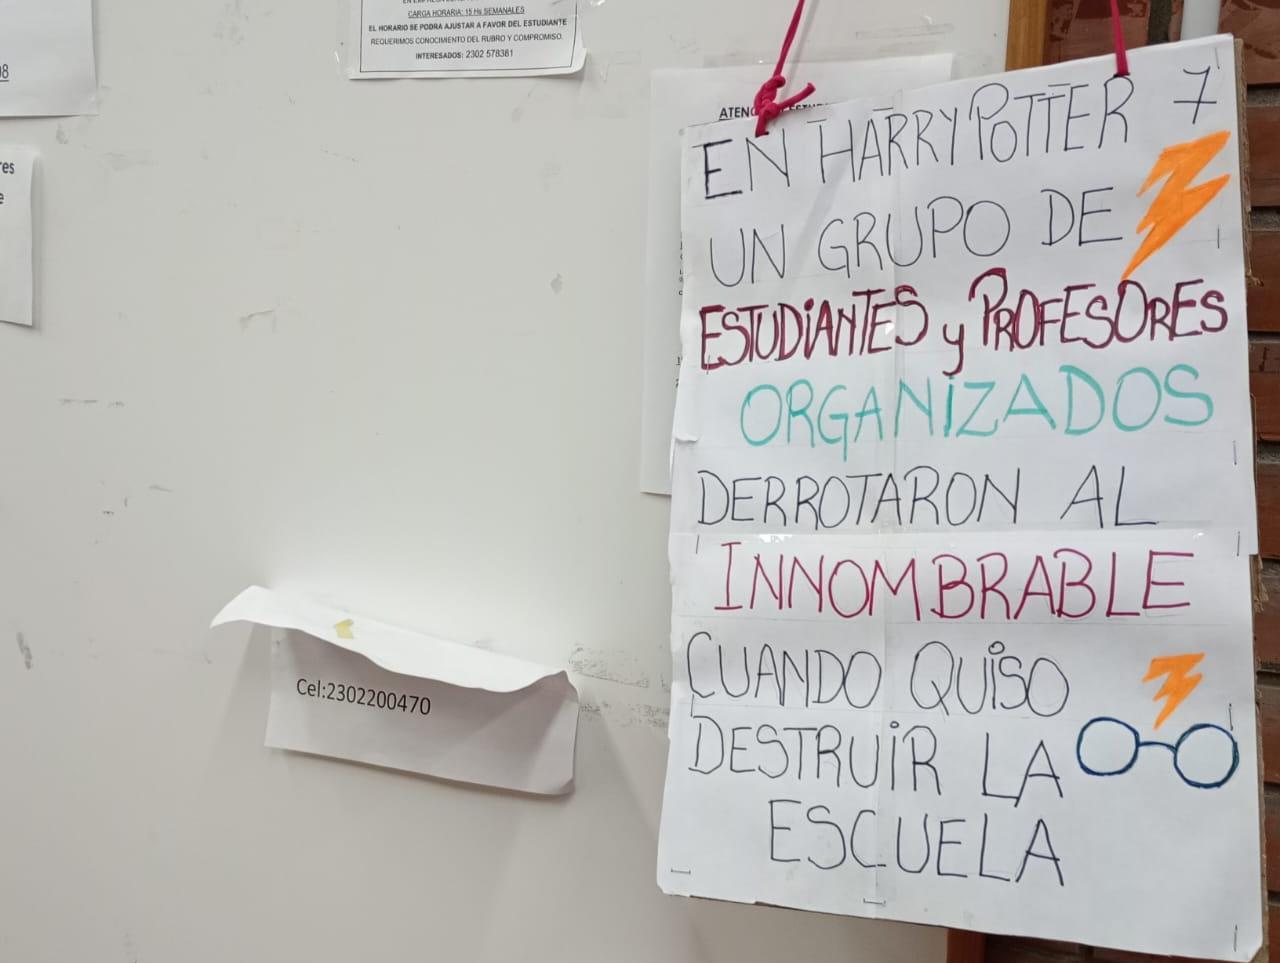 CARGA HORARIA: 15 Hs SEMANALES
EL HORARIO SE PODRA AJUSTAR A FAVOR DEL ESTUDIANTE
REQUERIMOS CONOCIMIENTO DEL RUBRO Y COMPROMISO.
INTERESADOS: 2302 578381
Cel:2302200470
EN HARRY POTTER 7
UN GRUPO DE
ESTUDIANTES y PROFESORES
ORGANIZADOS
DERROTARON AL
INNOMBRABLE
CUANDO QUISO
DESTRUIR LA
ESCUELA